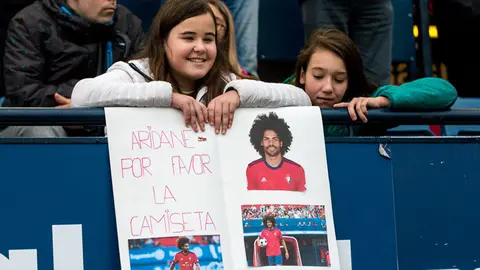 ARIDANE
POR FAVOR
LA
CAMISETA